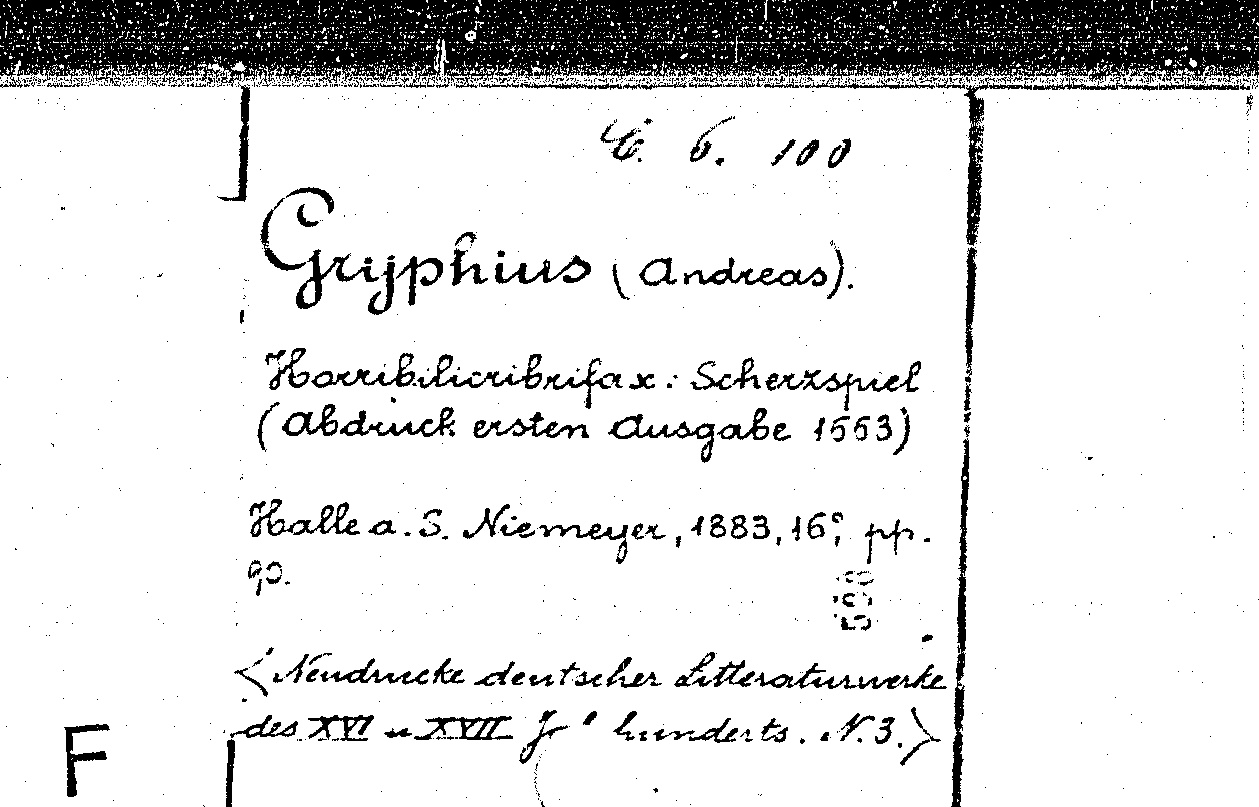 C. 6. 100
Gryphius (Andreas).
Horribilicribrifax: Scherzspiel
(Abdruck ersten Ausgabe 1663)
Halle a. S. Niemeyer, 1883, 16°, pp.
90.
<Neudrucke deutscher Litteraturwerke
des XVI u XVII J' hunderts. N. 3.>
F